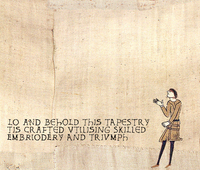 LO AND BEHOLD THIS TAPESTRY
TIS CRAFTED VTILISING SKILLED
EMBRIODERY AND TRIVMPH